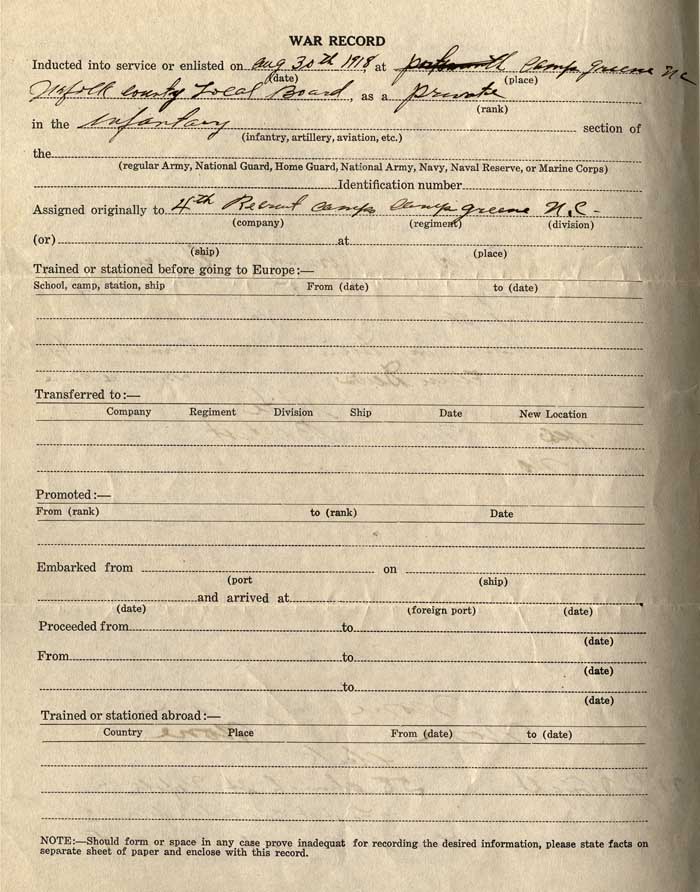 WAR RECORD
Inducted into service or enlisted on Aug 30th 1918, at Camp Greene NC
(date) (place)
Norfolk County Local Board, as a private
(rank)
in the Infantary section of
(infantry, artillery, aviation, etc.)
the
(regular Army, National Guard, Home Guard, National Army, Navy, Naval Reserve, or Marine Corps)
Identification number
Assigned originally to 4th Recruit Camp Camp Greene N.C-
(company) (regiment) (division)
(or) at
(ship) (place)
Trained or stationed before going to Europe:—
School, camp, station, ship From (date) to (date)
Transferred to:—
Company Regiment Division Ship Date New Location
Promoted:—
From (rank) to (rank) Date
Embarked from on
(port (ship)
and arrived at
(date) (foreign port) (date)
Proceeded from to
(date)
From to
(date)
to
(date)
Trained or stationed abroad:—
Country Place From (date) to (date)
NOTE:—Should form or space in any case prove inadequat for recording the desired information, please state facts on
separate sheet of paper and enclose with this record.